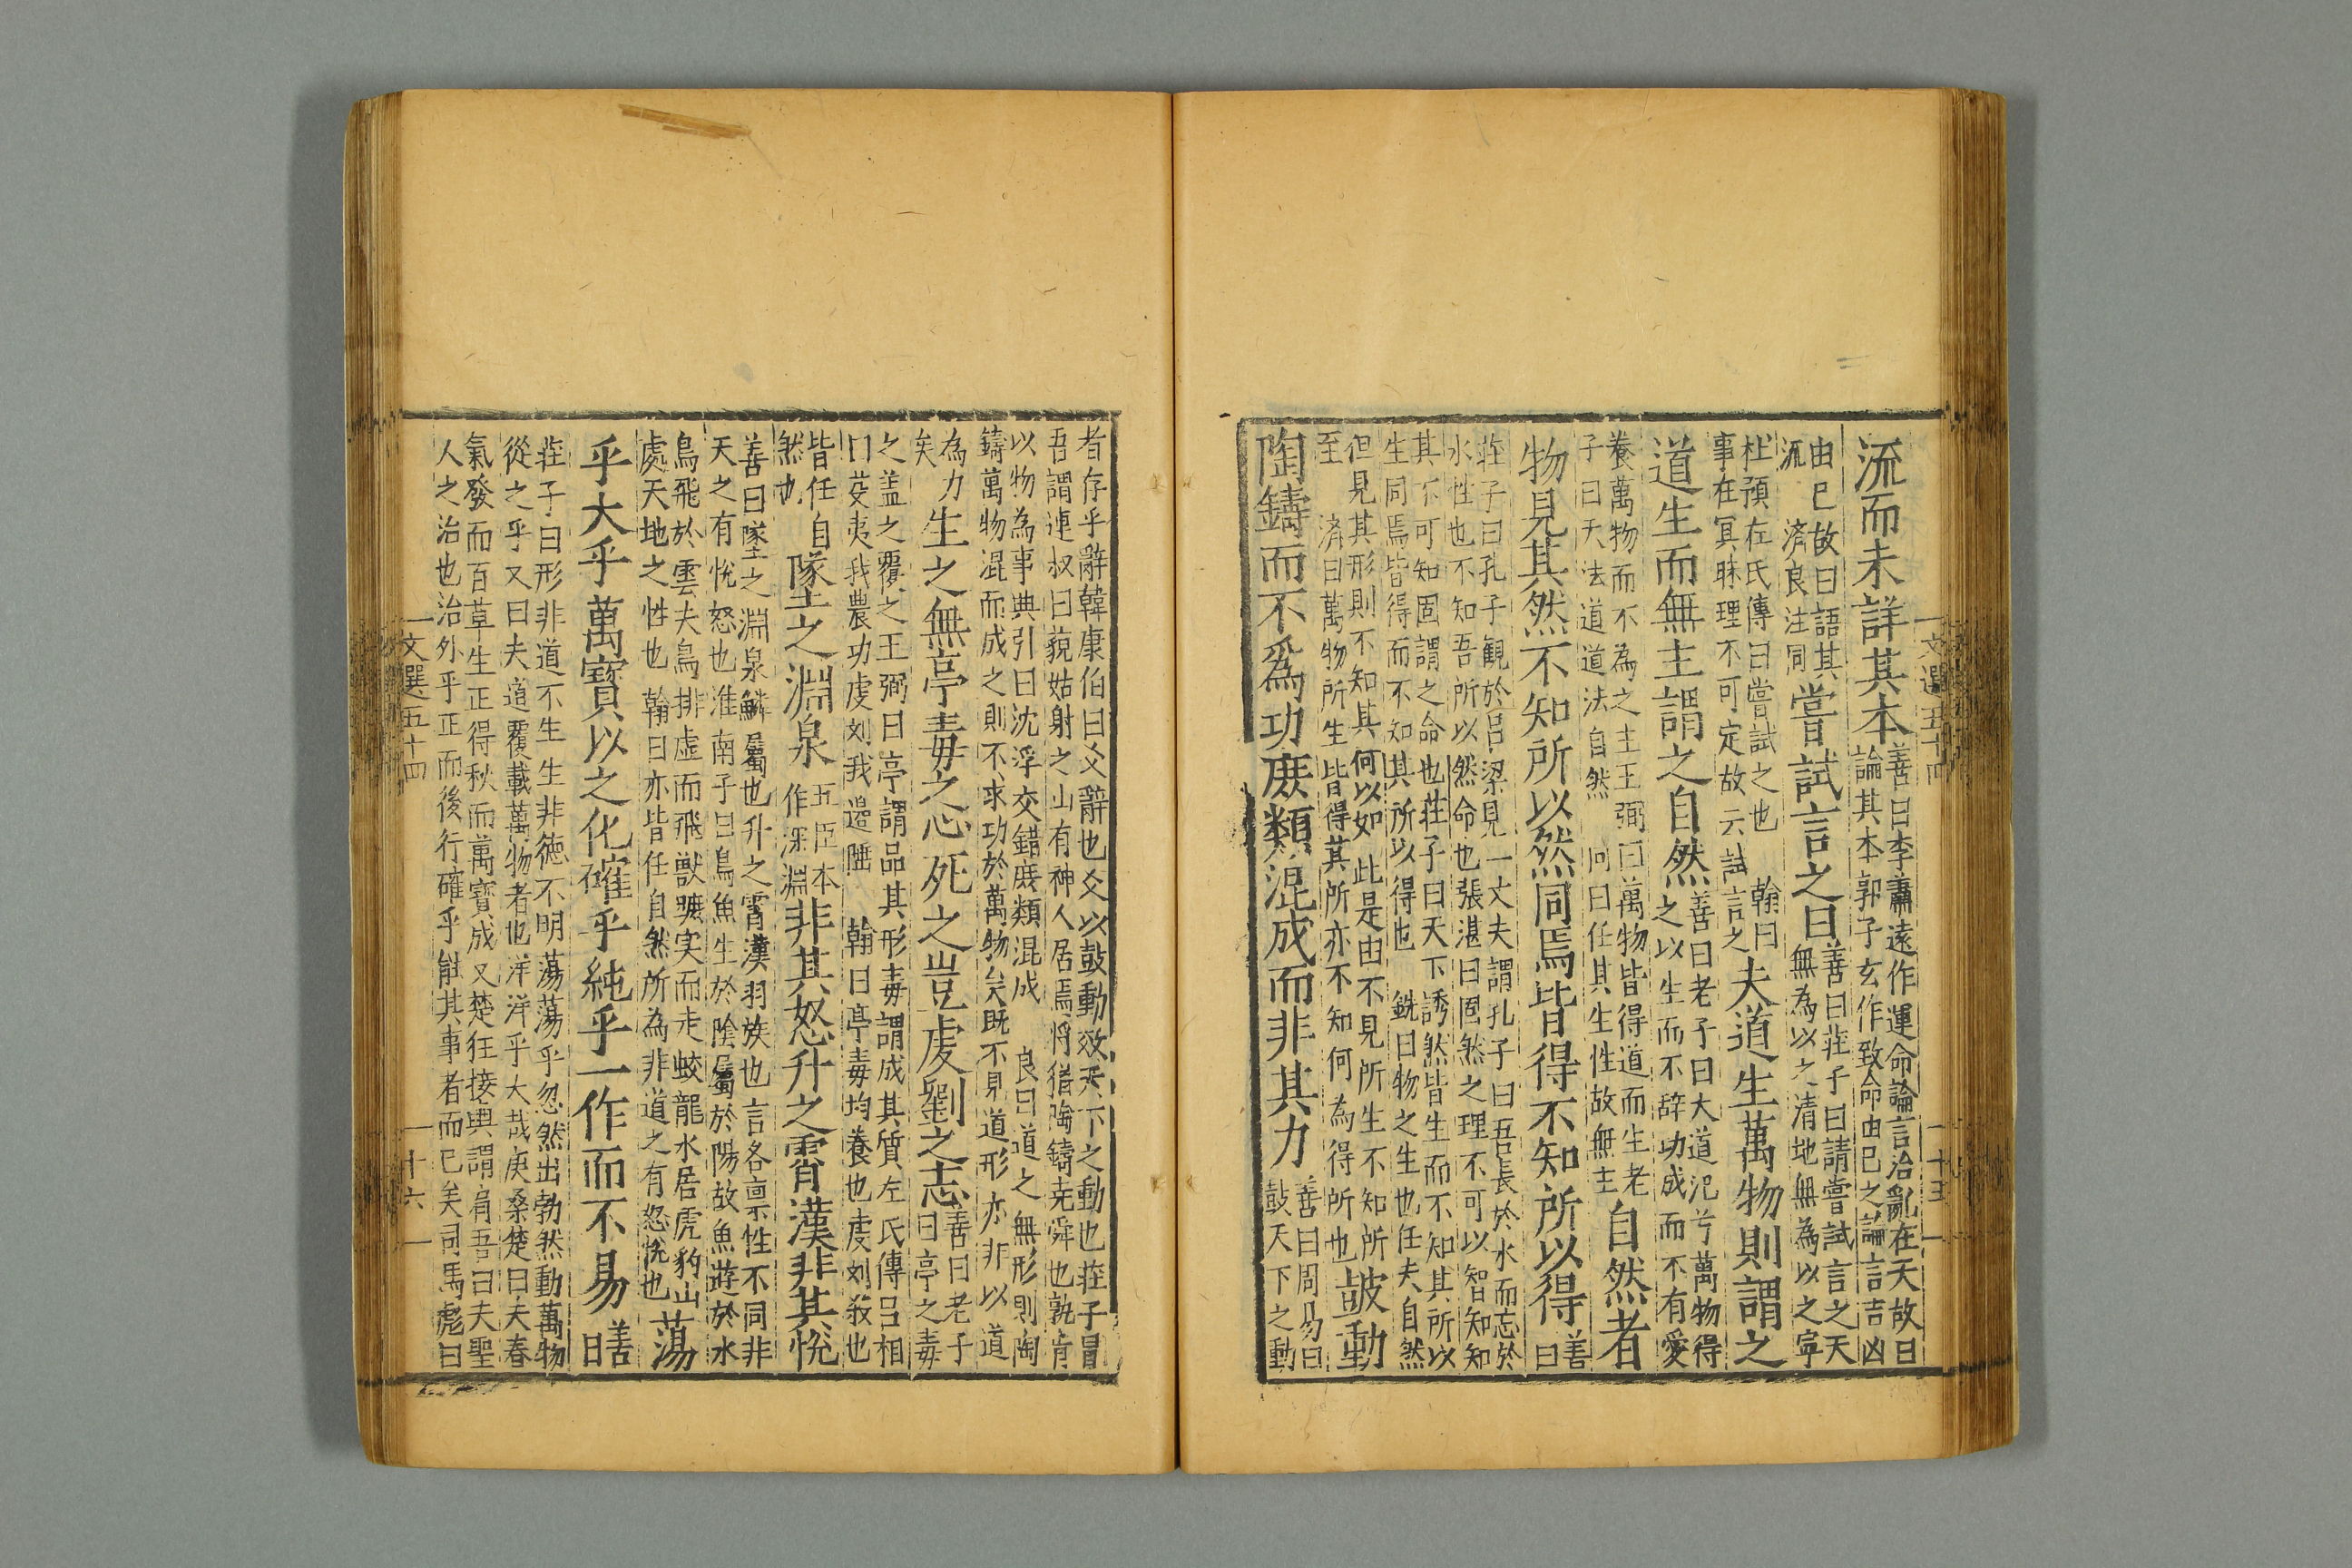 流而未詳其本善曰李蕭遠作運命論言治亂在天故曰
論其本郭子玄作致命由巳之論言吉凶
由巳故曰語其
流 濟良注同嘗試言之曰善曰莊子曰請嘗試言之天
無為以之清地無為以之寧
杜預左氏傳曰嘗試之也 翰曰
事在冥昧理不可定故云試言之夫道生萬物則謂之
道生而無主謂之自然善曰老子曰大道氾兮萬物得
之以生而不辞功成而不有愛
養萬物而不為之主王弼曰萬物皆得道而生老
子曰天法道道法自然 向曰任其生性故無主自然者
物見其然不知所以然同焉皆得不知所以得善
曰
莊子曰孔子觀於吕梁見一丈夫謂孔子曰吾長於水而忘於
水性也不知吾所以然命也張湛曰固然之理不可以智知知
其不可知固謂之命也莊子曰天下誘然皆生而不知其所以
生同焉皆得而不知其所以得也 銑曰物之生也任夫自然
但見其形則不知其何以如此是由不見所生不知所
至 濟曰萬物所生皆得其所亦不知何為得所也皷動
陶鑄而不爲功庶類混成而非其力善曰周易曰
鼓天下之動
文選五十四
十五
者存乎辭韓康伯曰爻辭也爻以鼓動效天下之動也莊子冒
吾謂連叔曰藐姑射之山有神人居焉將猶陶鑄尭舜也孰肯
以物為事典引曰沈浮交錯庶類混成 良曰道之無形則陶
鑄萬物混而成之則不求功於萬物矣既不見道形亦非以道
為力
矣生之無亭毒之心死之豈虔劉之志善曰老子
曰亭之毒
之盖之覆之王弼曰亭謂品其形毒謂成其質左氏傳吕相
曰芟夷我農功虔刘我邉陲 翰曰亭毒均養也虔刘殺也
皆任自
然也墜之淵泉五臣本
作深淵非其怒升之霄漢非其悅
善曰墜之淵泉鱗屬也升之霄漢羽族也言各禀性不同非
天之有悅怒也淮南子曰鳥魚生於陰屬於陽故魚遊於水
鳥飛於雲夫鳥排虚而飛獸蹠实而走蛟龍水居虎豹山
處天地之性也 翰曰亦皆任自然所為非道之有怒悅也蕩
乎大乎萬寶以之化確乎純乎一作而不易善
曰
莊子曰形非道不生生非德不明蕩蕩乎忽然出勃然動萬物
從之乎又曰夫道覆載萬物者也洋洋乎大哉庚桑楚曰夫春
氣發而百草生正得秋而萬寶成又楚狂接輿謂肩吾曰夫聖
人之治也治外乎正而後行確乎能其事者而已矣司馬彪曰
文選五十四
十六